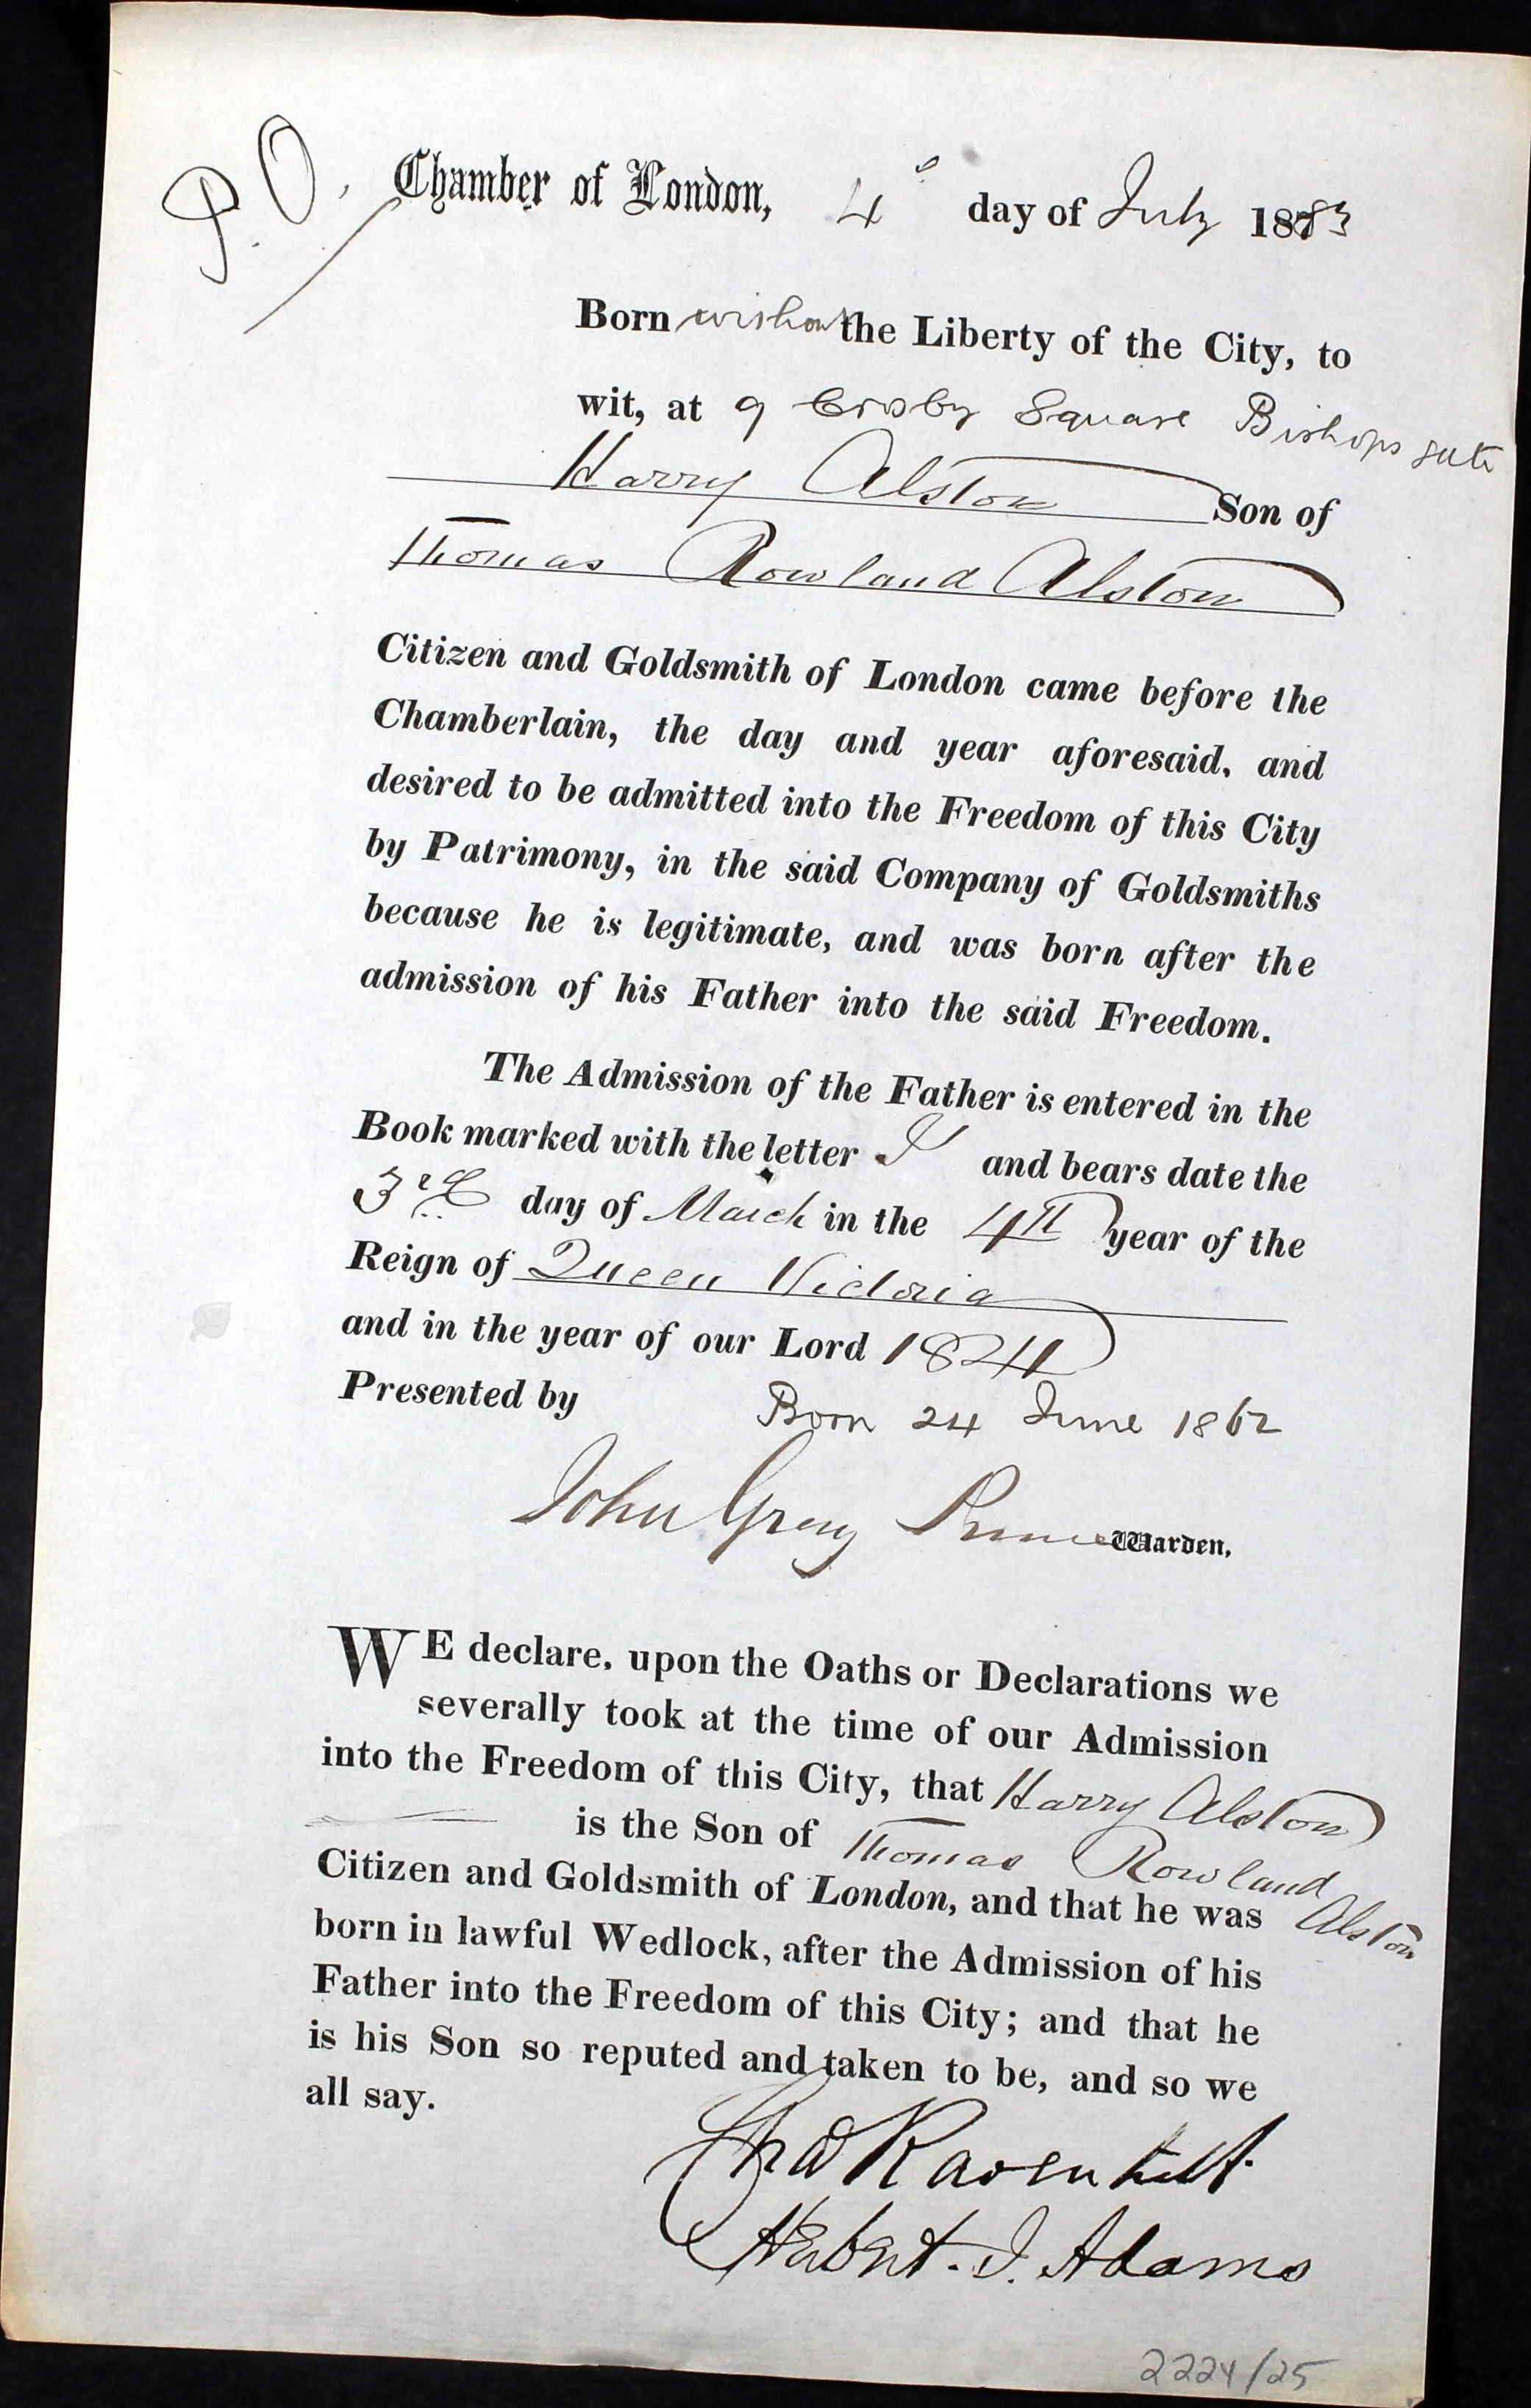 P.O.
Chamber of London, 4 day of July 1883
Born without the Liberty of the City, to
wit, at 9 Crosby Square Bishopsgate
Harry Alston Son of
Thomas Rowland Alston
Citizen and Goldsmith of London came before the
Chamberlain, the day and year aforesaid, and
desired to be admitted into the Freedom of this City
by Patrimony, in the said Company of Goldsmiths
because he is legitimate, and was born after the
admission of his Father into the said Freedom.
The Admission of the Father is entered in the
Book marked with the letter and bears date the
3rd day of March in the 4th year of the
Reign of Queen Victoria
and in the year of our Lord 1841
Presented by Born 24 June 1862
John Gray Prime Warden,
WE declare, upon the Oaths or Declarations we
severally took at the time of our Admission
into the Freedom of this City, that Harry Alston
is the Son of Thomas Rowland Alston
Citizen and Goldsmith of London, and that he was
born in lawful Wedlock, after the Admission of his
Father into the Freedom of this City; and that he
is his Son so reputed and taken to be, and so we
all say.
Ravenhill.
Herbert. J. Adams
2224/25